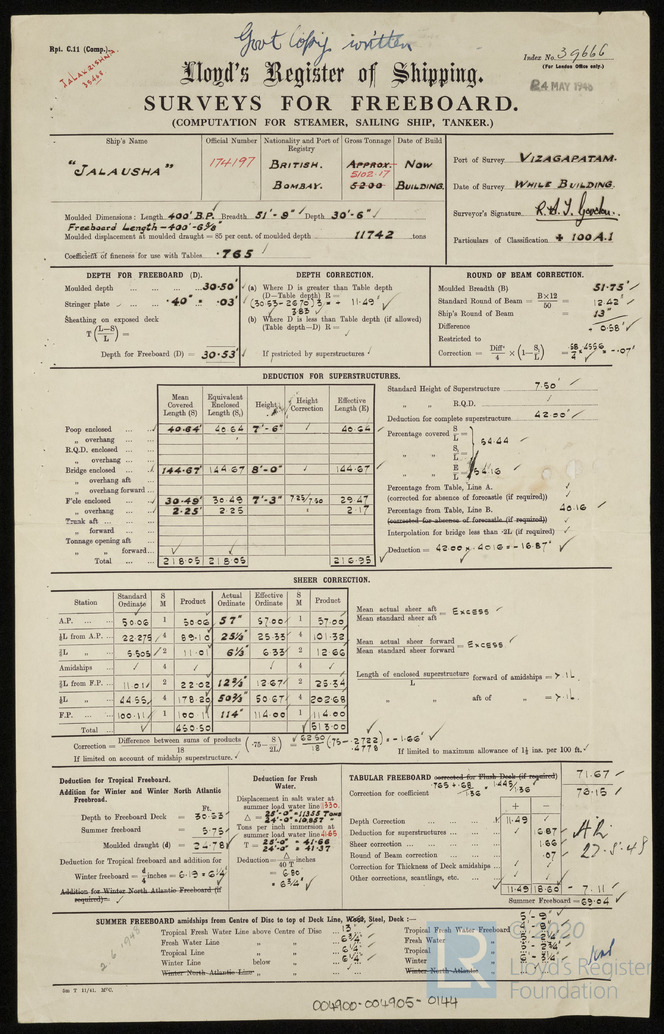 Rpt. C.11 (Comp.)
JALAKRISHNA
39468
Govt Copy written
Index No. 39666
(For London Office only.)
24 MAY 1948
Lloyd's Register of Shipping.
SURVEYS FOR FREEBOARD.
(COMPUTATION FOR STEAMER, SAILING SHIP, TANKER.)
Ship's Name Official Number Nationality and Port of Registry Gross Tonnage Date of Build
"JALAUSHA" 174197 BRITISH. BOMBAY. APPROX. 5102.17 5200 NOW BUILDING.
Port of Survey VIZAGAPATAM.
Date of Survey WHILE BUILDING.
Surveyor's Signature
Particulars of Classification + 100 A.1
Moulded Dimensions: Length 400' B.P. Breadth 51'-9" Depth 30'-6"
Freeboard Length - 400'-6⅜"
Moulded displacement at moulded draught = 85 per cent. of moulded depth 11742 tons
Coefficient of fineness for use with Tables .765
DEPTH FOR FREEBOARD (D).
Moulded depth 30.50'
Stringer plate .40" = .03'
Sheathing on exposed deck
T(L-S/L) =
Depth for Freeboard (D) = 30.53'
DEPTH CORRECTION.
(a) Where D is greater than Table depth
(D-Table depth) R =
(30.53-26.70)3 = 11.49"
3.83
(b) Where D is less than Table depth (if allowed)
(Table depth-D) R =
If restricted by superstructures
ROUND OF BEAM CORRECTION.
Moulded Breadth (B) 51.75'
Standard Round of Beam = B×12/50 = 12.42"
Ship's Round of Beam = 13"
Difference 0.58'
Restricted to
Correction = Diffce/4 × (1-S₁/L) = .58/4 × .4556 = -.07'
DEDUCTION FOR SUPERSTRUCTURES.
Mean Covered Length (S) Equivalent Enclosed Length (S₁) Height Height Correction Effective Length (E)
Poop enclosed 40.64' 40.64 7'-6" 40.64
„ overhang
R.Q.D. enclosed
„ overhang
Bridge enclosed 144.67' 144.67 8'-0" 144.67
„ overhang aft
„ overhang forward
F'cle enclosed 30.49' 30.49 7'-3" 7.25/7.50 29.47
„ overhang 2.25' 2.25 2.17
Trunk aft
„ forward
Tonnage opening aft
„ „ forward
Total 218.05 218.05 216.95
Standard Height of Superstructure 7.50'
„ „ R.Q.D.
Deduction for complete superstructure 42.00"
Percentage covered S/L =
„ „ S₁/L = 54.44
„ „ E/L = 54.16
Percentage from Table, Line A.
(corrected for absence of forecastle (if required))
Percentage from Table, Line B. 40.16
(corrected for absence of forecastle (if required))
Interpolation for bridge less than .2L (if required)
Deduction = 42.00 × .4016 = -16.87"
SHEER CORRECTION.
Station Standard Ordinate S M Product Actual Ordinate Effective Ordinate S M Product
A.P. 50.06 1 50.06 57" 57.00 1 57.00
⅙L from A.P. 22.275 4 89.10 25⅓" 25.33 4 101.32
⅓L „ 5.505 2 11.01 6⅓" 6.33 2 12.66
Amidships 4 4
⅓L from F.P. 11.01 2 22.02 12⅔" 12.67 2 25.34
⅙L „ 44.55 4 178.20 50⅔" 50.67 4 202.68
F.P. 100.11 1 100.11 114" 114.00 1 114.00
Total 450.50 513.00
Mean actual sheer aft
Mean standard sheer aft = EXCESS
Mean actual sheer forward
Mean standard sheer forward = EXCESS
Length of enclosed superstructure/L forward of amidships = >.1L
„ „ aft of „ = >.1L
Correction = Difference between sums of products/18 (.75-S/2L) = 62.50/18 (.75-.2722) = -1.66"
.4778
If limited on account of midship superstructure.
If limited to maximum allowance of 1½ ins. per 100 ft.
Deduction for Tropical Freeboard.
Addition for Winter and Winter North Atlantic Freeboard.
Ft.
Depth to Freeboard Deck = 30.53
Summer freeboard = 5.75
Moulded draught (d) = 24.78
Deduction for Tropical freeboard and addition for
Winter freeboard = d/4 inches = 6.19 = 6¼"
Addition for Winter North Atlantic Freeboard (if required) =
Deduction for Fresh Water.
Displacement in salt water at summer load water line
△ = 25'-0" = 11355 TONS
24'-0" = 10857 "
Tons per inch immersion at summer load water line
T = 25'-0" = 41.66
24'-0" = 41.37
Deduction = △/40 T inches
= 6.80
= 6¾"
TABULAR FREEBOARD corrected for Flush Deck (if required) 71.67
Correction for coefficient .765 + .68/1.36 = 1.445/1.36 76.15
+ -
Depth Correction 11.49
Deduction for superstructures 16.87
Sheer correction 1.66
Round of Beam correction .07
Correction for Thickness of Deck amidships
Other corrections, scantlings, etc.
11.49 18.60 - 7.11
Summer Freeboard = 69.04
27-5-48
SUMMER FREEBOARD amidships from Centre of Disc to top of Deck Line, Wood, Steel, Deck :—
Tropical Fresh Water Line above Centre of Disc 13"
Fresh Water Line „ „ 6¾"
Tropical Line „ „ 6¼"
Winter Line below „ 6¼"
Winter North Atlantic Line „ „
Tropical Fresh Water Freeboard
Fresh Water „
Tropical „
Winter „
Winter North Atlantic „
2.6.1948
5m T 11/41. MºC.
© 2020
Lloyd's Register
Foundation
LR
004900-004905-0144